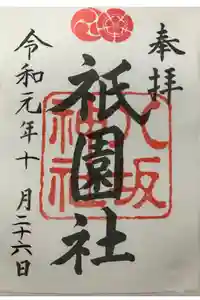 奉拝
八坂神社
祇園社
令和元年十月二十六日